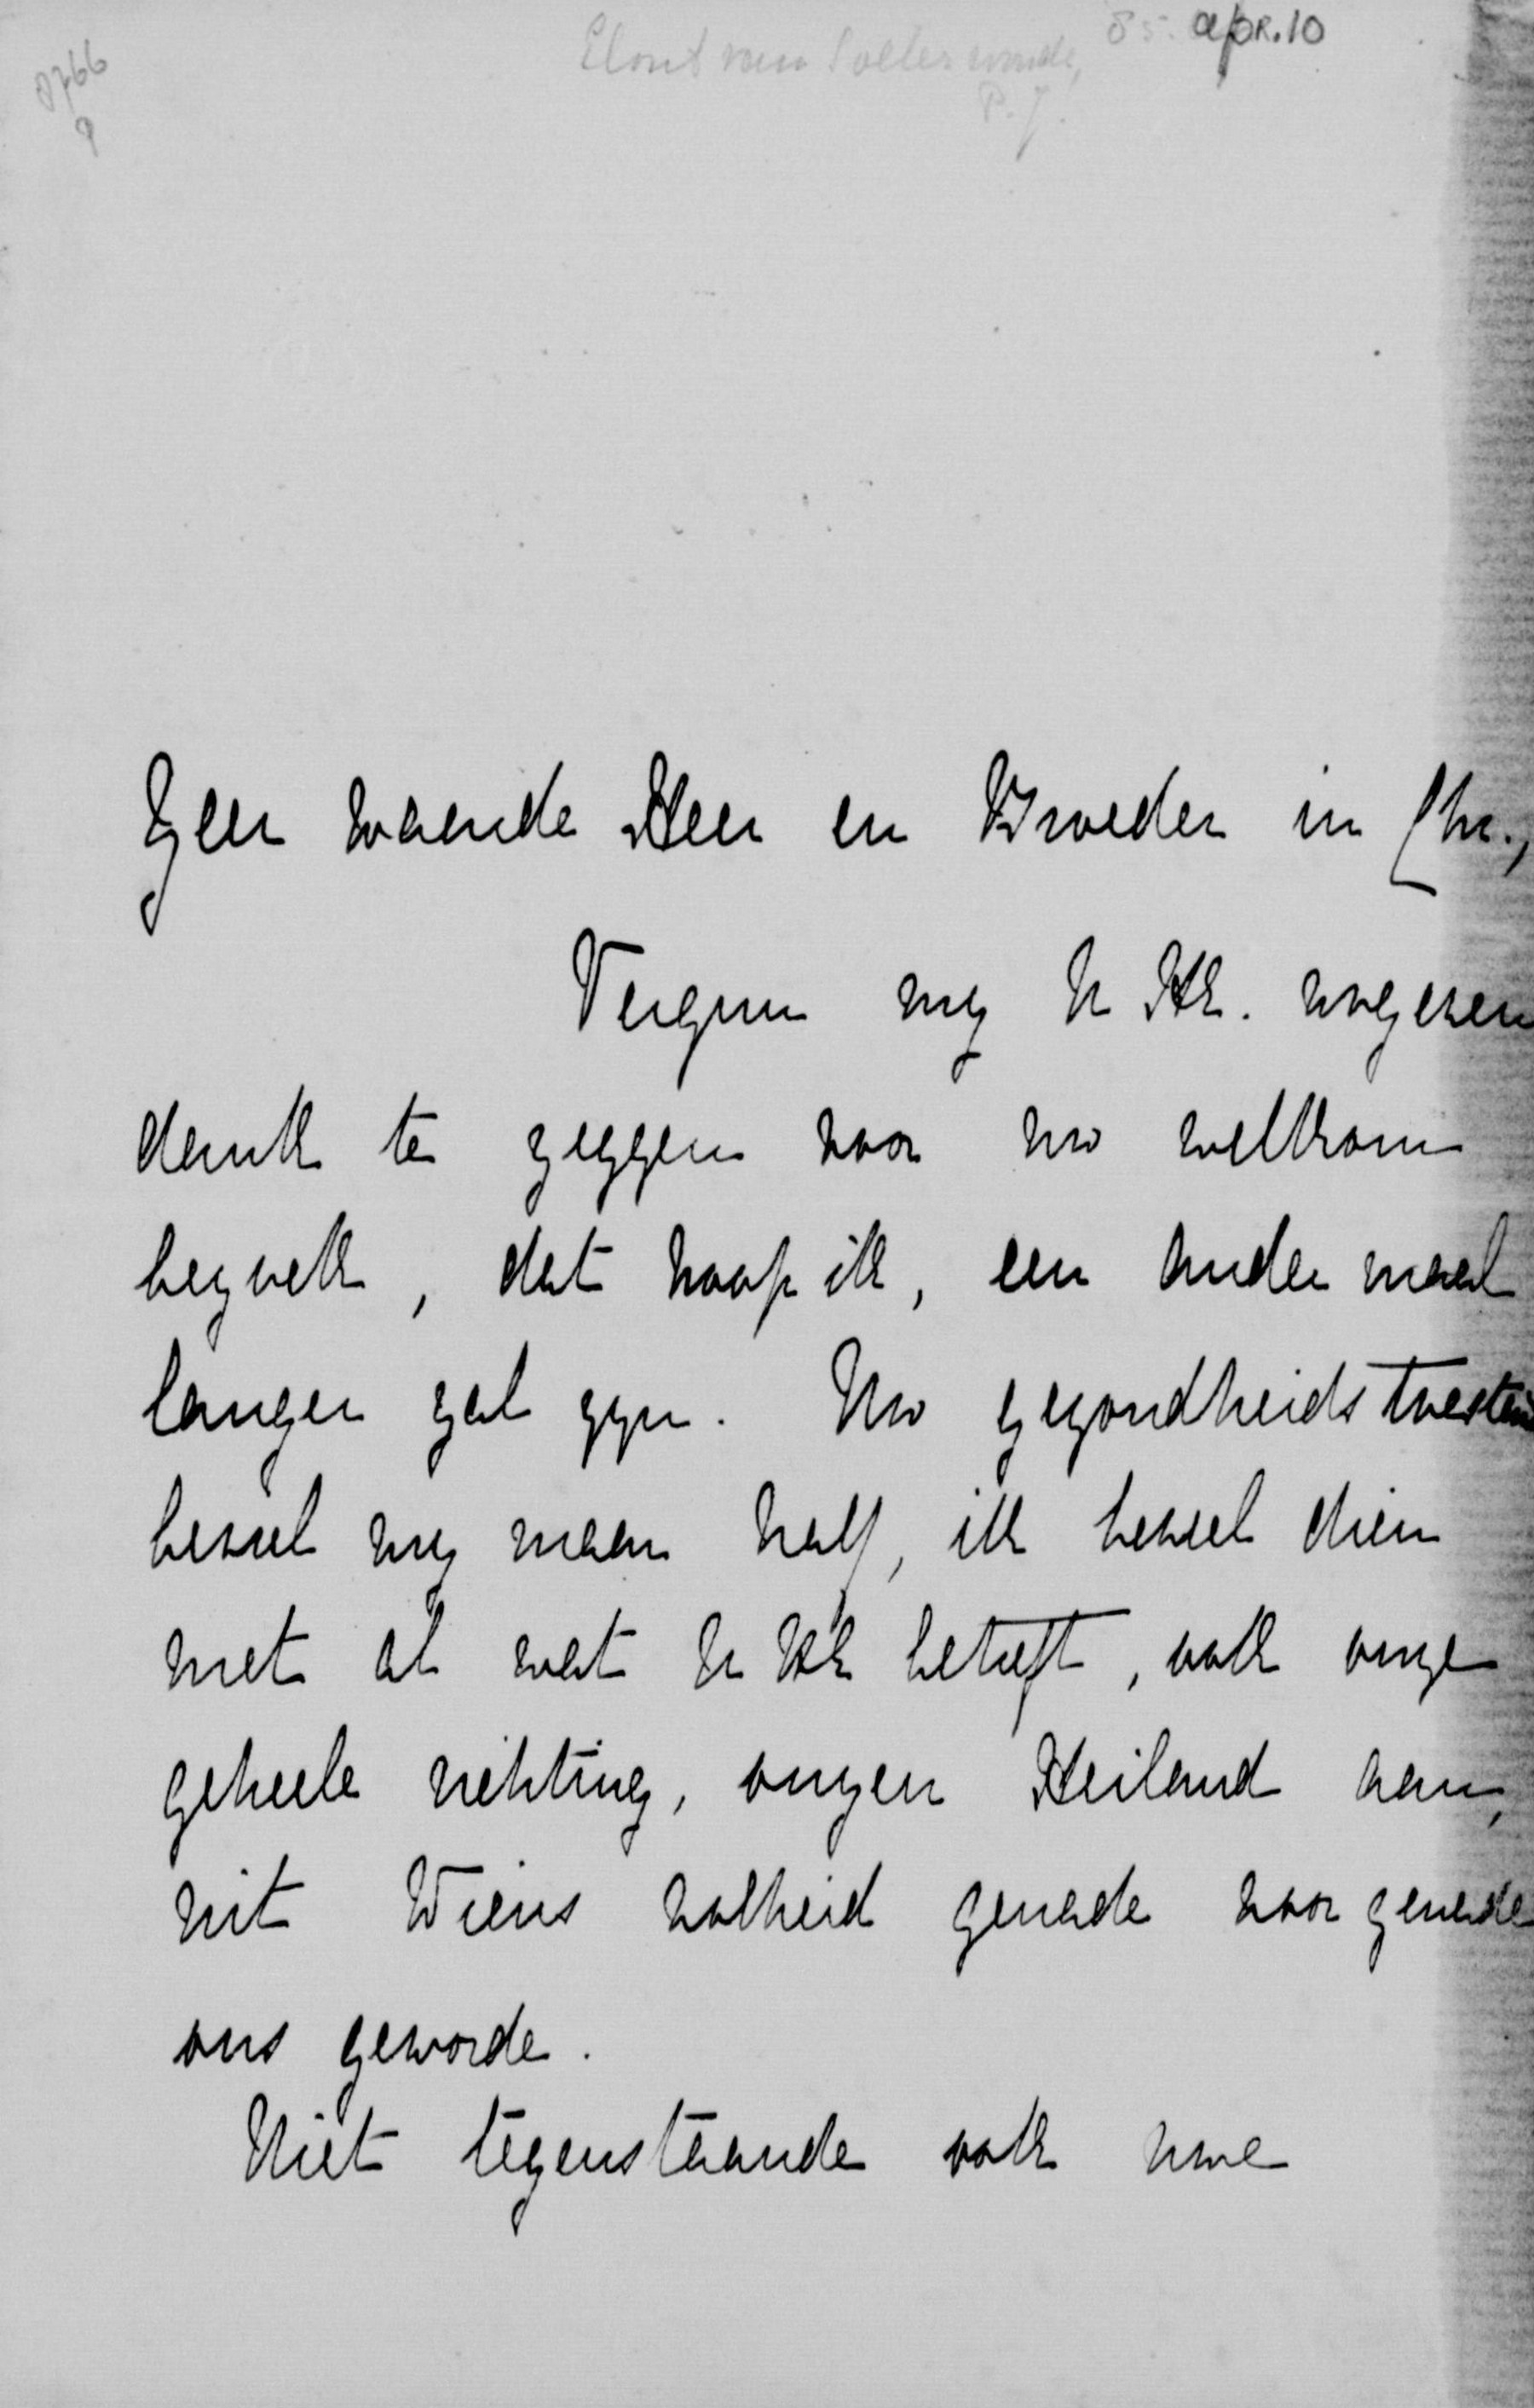 Elout van Soeterwoude, 85. apr. 10
P. J.
Zeer waarde Heer en Broeder in Chr.,
Vergun mij U HE. nog eren
dank te zeggen voor uw welkom
bezoek, dat hoop ik, een ander maal
langer zal zijn. Uw gezondheids toestan
beviel mij maar half, ik beveel dien
met al wat U HE betreft, ook onze
geheele richting, onzen Heiland aan,
uit Wiens volheid genade voor genade
ons geworde.
Niet tegenstaande ook uwe